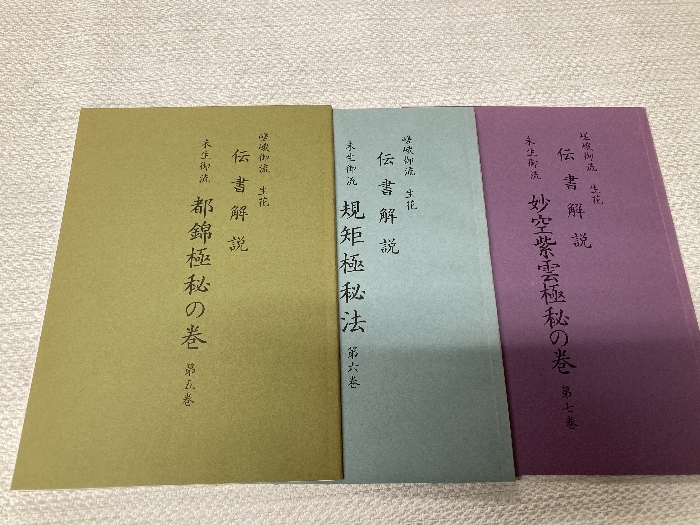 嵯峨御流 生花
伝書解説
未生御流
都錦極秘の巻 第五巻
嵯峨御流 生花
伝書解説
未生御流
規矩極秘法 第六巻
嵯峨御流 生花
伝書解説
未生御流
妙空紫雲極秘の巻 第七巻